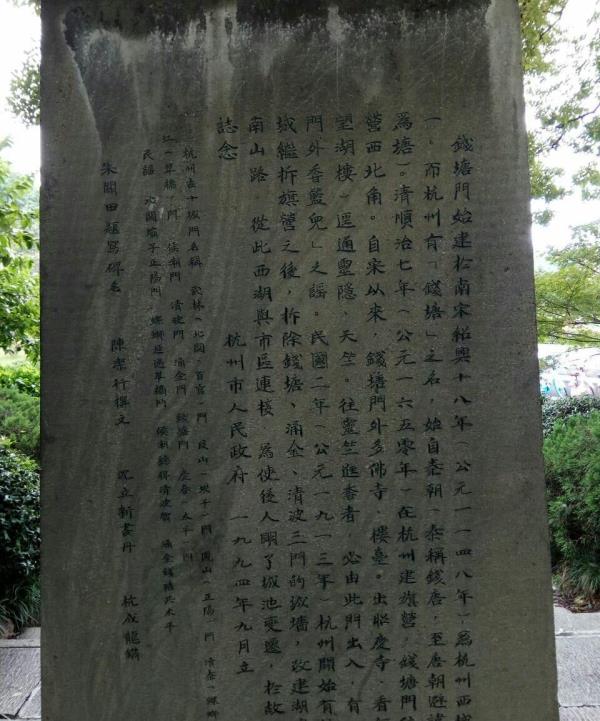 錢塘門始建於南宋紹興十八年（公元一一四八年）爲杭州西城
一，而杭州有「錢塘」之名，始自秦朝，秦稱錢唐，至唐朝避
爲塘。清順治七年（公元一六五零年）在杭州建旗營，錢塘門
營西北角。自宋以來，錢塘門外多佛寺、樓臺。出昭慶寺，看
望湖樓，逕通靈隱、天竺。往靈竺進香者，必由此門出入，有
門外香籃兒」之謡。民國二年（公元一九一三年）杭州開始有
城繼拆旗營之後，拆除錢塘、涌金、清波三門的城墻，改建湖
南山路，從此西湖與市區連接。爲使後人明了城池變遷，於故
誌念
杭州市人民政府 一九九四年九月立
杭州古十城門名稱 武林（北關、百官）門 艮山（壩子）門 鳳山（正陽）門 清泰（螺螄
江（草橋）門 候潮門 清波門 涌金門 錢塘門 慶春（太平）門
民謡 北關壩子正陽門，螺螄沿過草橋門，候潮聽得清波響，涌金錢塘共太平
朱關田題寫碑名 陳漢行撰文 沈立新書丹 杭成龍鐫